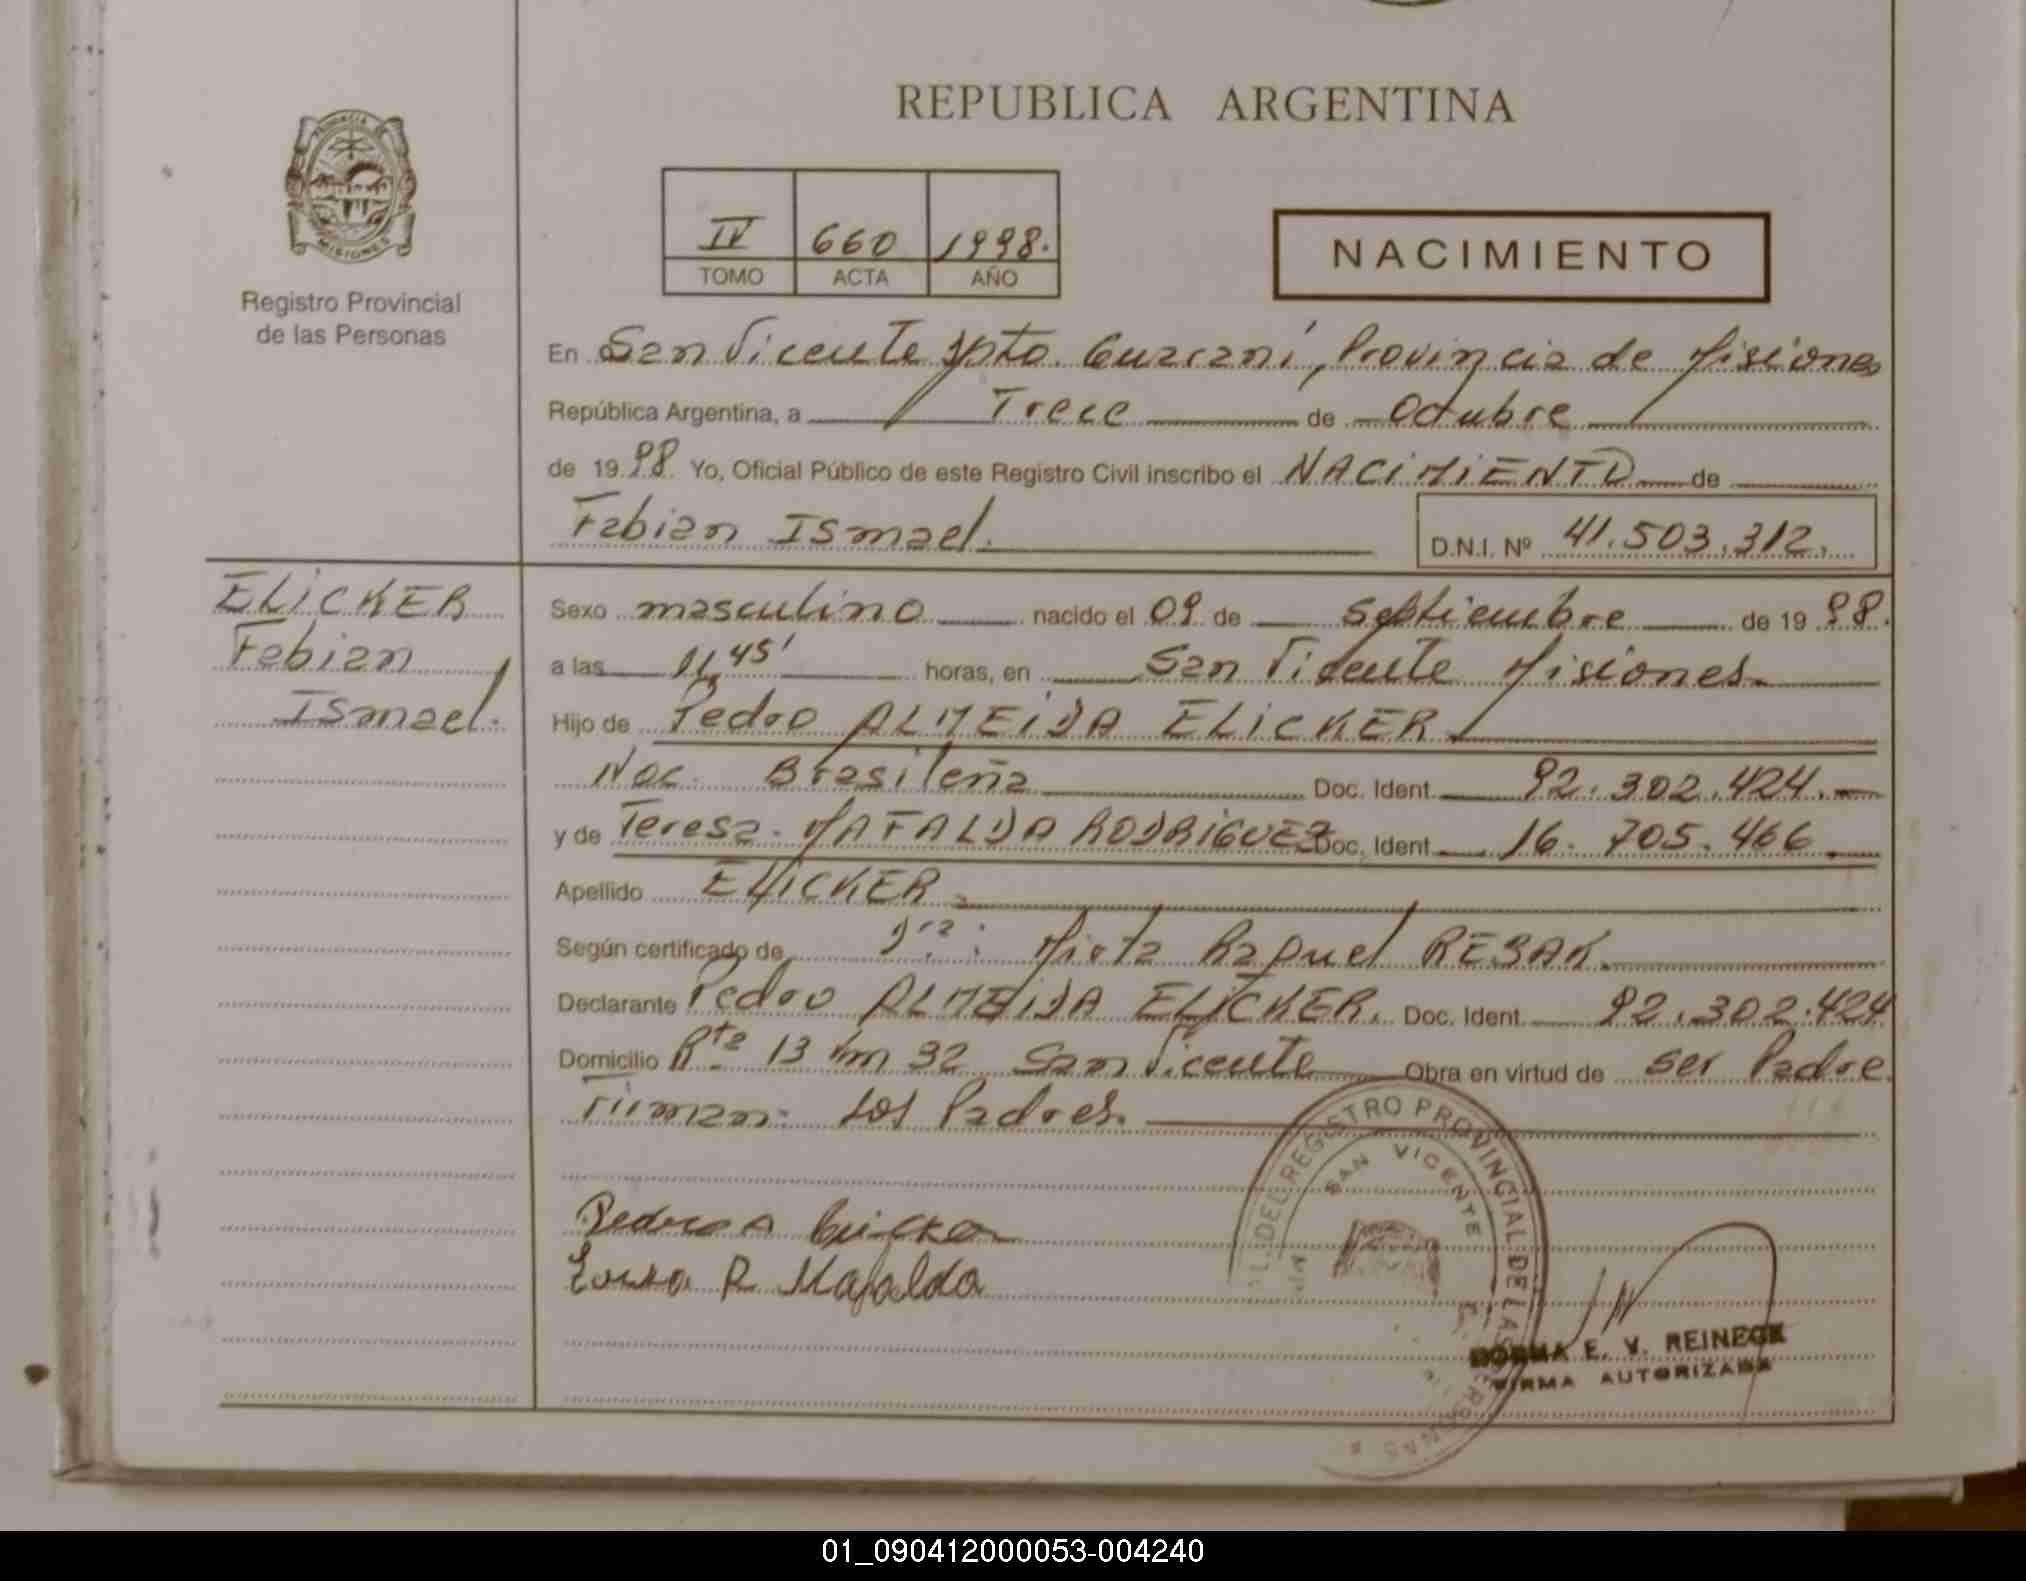 REPUBLICA ARGENTINA
PROVINCIA DE
MISIONES
Registro Provincial
de las Personas
IV 660 1998.
TOMO ACTA AÑO
NACIMIENTO
En San Vicente Dpto. Guaraní, Provincia de Misiones
República Argentina, a Trece de Octubre
de 1998 Yo, Oficial Público de este Registro Civil inscribo el NACIMIENTO de
Fabian Ismael. D.N.I. Nº 41.503.312.
ELICKER
Fabian
Ismael.
Sexo masculino nacido el 09 de Septiembre de 1998.
a las 11,45' horas, en San Vicente Misiones.
Hijo de Pedro ALMEIDA ELICKER
Nac. Brasileña Doc. Ident. 92.302.424.
y de Teresa MAFALDA RODRIGUEZ Doc. Ident. 16.705.466
Apellido ELICKER
Según certificado de Dra: Mirta Raquel
Declarante Pedro ALMEIDA ELICKER. Doc. Ident. 92.302.424
Domicilio Rta 13 km 32 San Vicente Obra en virtud de ser Padre.
Firman: Los Padres.
DEL REGISTRO PROVINCIAL DE LAS PERSONAS
SAN VICENTE
Pedro A
R Mafalda
E. V. REINECK
FIRMA AUTORIZADA
01_090412000053-004240